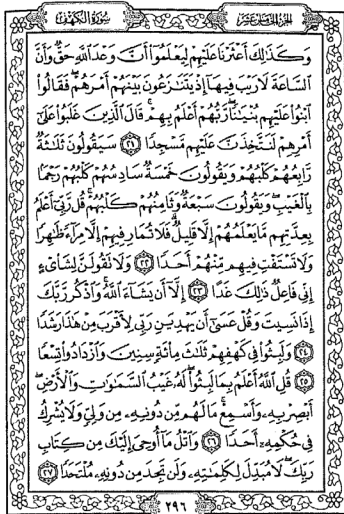 سُورَةُ الكَهْفِ
الجُزْءُ الخَامِسَ عَشَرَ
وَكَذَٰلِكَ أَعْثَرْنَا عَلَيْهِمْ لِيَعْلَمُوٓا۟ أَنَّ وَعْدَ ٱللَّهِ حَقٌّ وَأَنَّ
ٱلسَّاعَةَ لَا رَيْبَ فِيهَآ إِذْ يَتَنَٰزَعُونَ بَيْنَهُمْ أَمْرَهُمْ ۖ فَقَالُوا۟
ٱبْنُوا۟ عَلَيْهِم بُنْيَٰنًا ۖ رَّبُّهُمْ أَعْلَمُ بِهِمْ ۚ قَالَ ٱلَّذِينَ غَلَبُوا۟ عَلَىٰٓ
أَمْرِهِمْ لَنَتَّخِذَنَّ عَلَيْهِم مَّسْجِدًا ۝٢١ سَيَقُولُونَ ثَلَٰثَةٌ
رَّابِعُهُمْ كَلْبُهُمْ وَيَقُولُونَ خَمْسَةٌ سَادِسُهُمْ كَلْبُهُمْ رَجْمًۢا
بِٱلْغَيْبِ ۖ وَيَقُولُونَ سَبْعَةٌ وَثَامِنُهُمْ كَلْبُهُمْ ۚ قُل رَّبِّىٓ أَعْلَمُ
بِعِدَّتِهِم مَّا يَعْلَمُهُمْ إِلَّا قَلِيلٌ ۗ فَلَا تُمَارِ فِيهِمْ إِلَّا مِرَآءً ظَٰهِرًا
وَلَا تَسْتَفْتِ فِيهِم مِّنْهُمْ أَحَدًا ۝٢٢ وَلَا تَقُولَنَّ لِشَا۟ىْءٍ
إِنِّى فَاعِلٌ ذَٰلِكَ غَدًا ۝٢٣ إِلَّآ أَن يَشَآءَ ٱللَّهُ ۚ وَٱذْكُر رَّبَّكَ
إِذَا نَسِيتَ وَقُلْ عَسَىٰٓ أَن يَهْدِيَنِ رَبِّى لِأَقْرَبَ مِنْ هَٰذَا رَشَدًا
۝٢٤ وَلَبِثُوا۟ فِى كَهْفِهِمْ ثَلَٰثَ مِا۟ئَةٍ سِنِينَ وَٱزْدَادُوا۟ تِسْعًا
۝٢٥ قُلِ ٱللَّهُ أَعْلَمُ بِمَا لَبِثُوا۟ ۖ لَهُۥ غَيْبُ ٱلسَّمَٰوَٰتِ وَٱلْأَرْضِ ۖ
أَبْصِرْ بِهِۦ وَأَسْمِعْ ۚ مَا لَهُم مِّن دُونِهِۦ مِن وَلِىٍّ وَلَا يُشْرِكُ
فِى حُكْمِهِۦٓ أَحَدًا ۝٢٦ وَٱتْلُ مَآ أُوحِىَ إِلَيْكَ مِن كِتَابِ
رَبِّكَ ۖ لَا مُبَدِّلَ لِكَلِمَٰتِهِۦ وَلَن تَجِدَ مِن دُونِهِۦ مُلْتَحَدًا ۝٢٧
٢٩٦